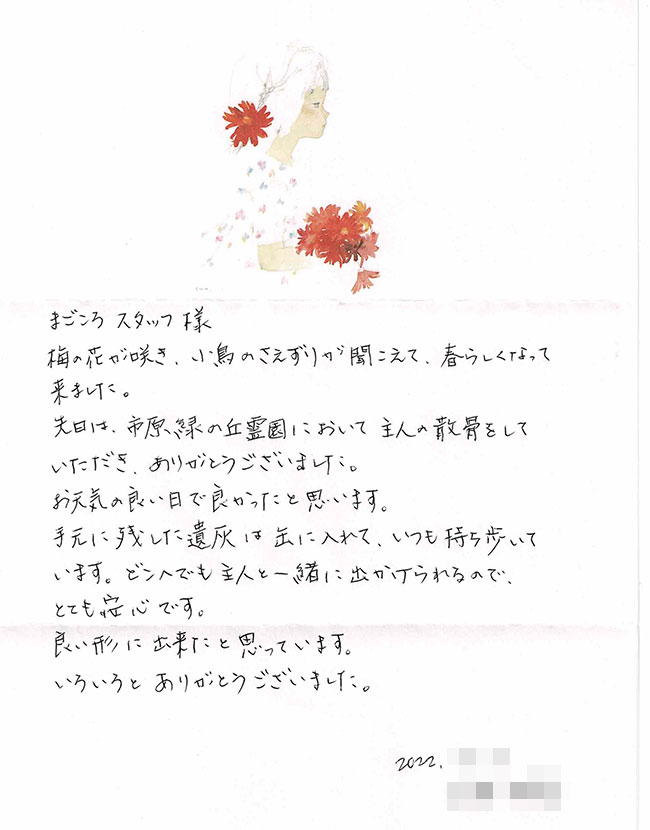 まごころ スタッフ 様
梅の花が咲き、小鳥のさえずりが聞こえて、春らしくなって
来ました。
先日は、市原緑の丘霊園において 主人の散骨をして
いただき、ありがとうございました。
お天気の良い日で良かったと思います。
手元に残した遺灰は 缶に入れて、いつも持ち歩いて
います。どこへでも主人と一緒に出かけられるので、
とても安心です。
良い形に出来たと思っています。
いろいろと ありがとうございました。
2022.